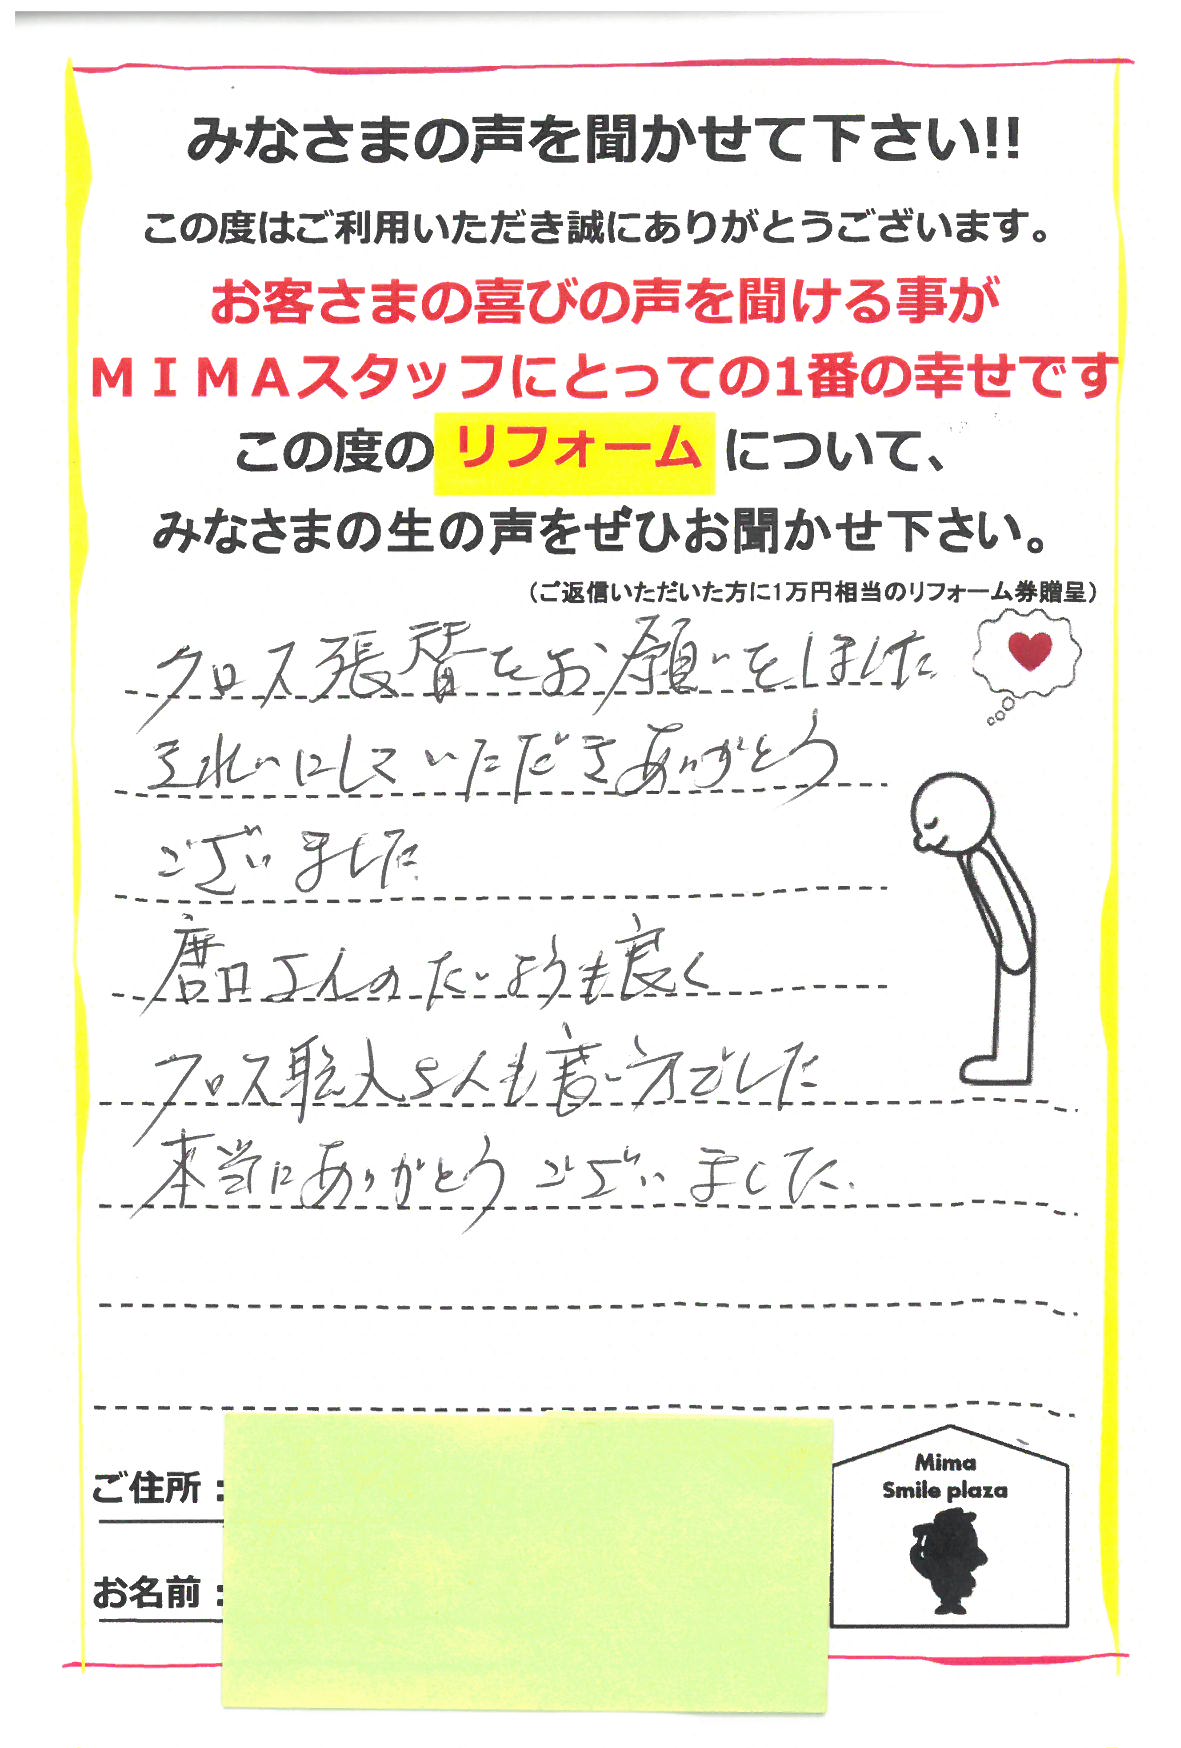 みなさまの声を聞かせて下さい!!
この度はご利用いただき誠にありがとうございます。
お客さまの喜びの声を聞ける事が
ＭＩＭＡスタッフにとっての1番の幸せです
この度の リフォーム について、
みなさまの生の声をぜひお聞かせ下さい。
（ご返信いただいた方に1万円相当のリフォーム券贈呈）
クロス張替をお願いをしました
きれいにしていただきありがとう
ございました
さんのたいおうも良く
クロス職人さんも良い方でした
本当にありがとうございました.
ご住所：
お名前：
Mima
Smile plaza